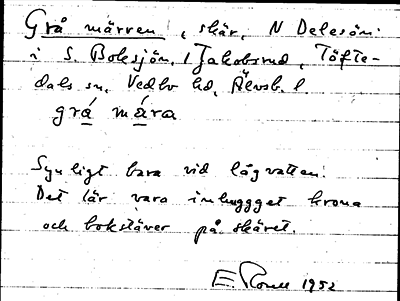 Grå märren, skär, N Delesön
i S. Boksjön, Jakobsrud, Töfte-
dals sn, Vedbo hd, Älvsb. l.
grå mára
Synligt bara vid lågvatten.
Det lär vara inhuggget krona
och bokstäver på skäret.
E. 1952